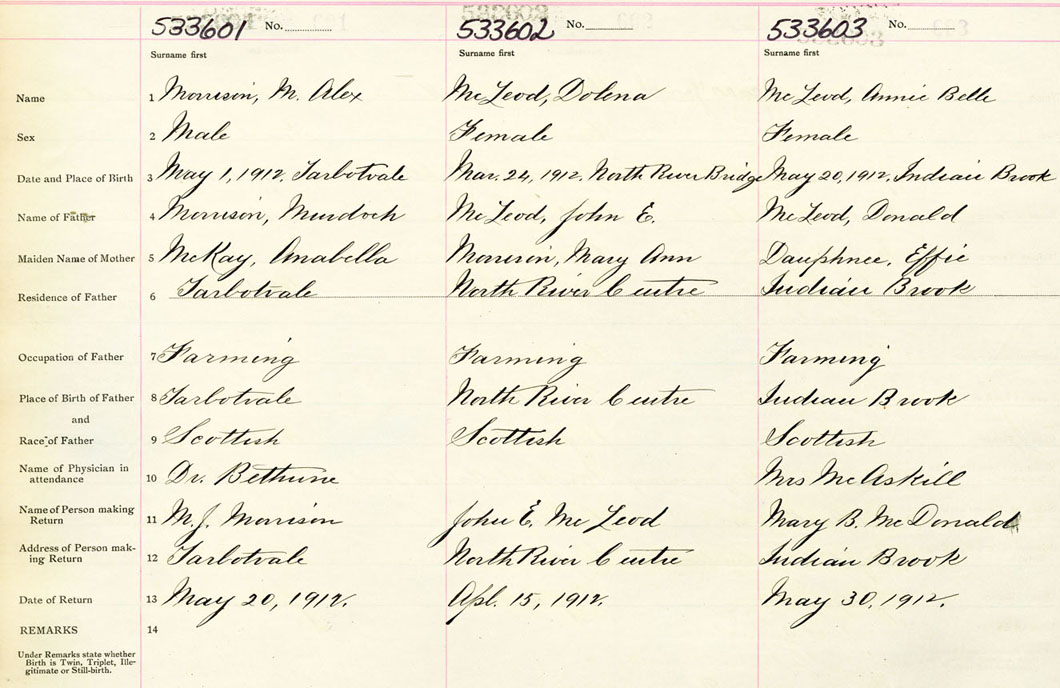 533601 No. 533602 No. 533603 No.
Surname first Surname first Surname first
Name 1 Morrison, M. Alex McLeod, Dolena McLeod, Annie Belle
Sex 2 Male Female Female
Date and Place of Birth 3 May 1, 1912. Tarbotvale Mar. 24, 1912. North River Bridge May 20, 1912. Indian Brook
Name of Father 4 Morrison, Murdoch McLeod, John E. McLeod, Donald
Maiden Name of Mother 5 McKay, Anabella Morrison, Mary Ann Dauphnee, Effie
Residence of Father 6 Tarbotvale North River Centre Indian Brook
Occupation of Father 7 Farming Farming Farming
Place of Birth of Father 8 Tarbotvale North River Centre Indian Brook
and
Race of Father 9 Scottish Scottish Scottish
Name of Physician in
attendance 10 Dr. Bethune Mrs McAskill
Name of Person making
Return 11 M. J. Morrison John E. McLeod Mary B. McDonald
Address of Person mak-
ing Return 12 Tarbotvale North River Centre Indian Brook
Date of Return 13 May 20, 1912. Apl. 15, 1912. May 30, 1912.
REMARKS 14
Under Remarks state whether
Birth is Twin, Triplet, Ille-
gitimate or Still-birth.